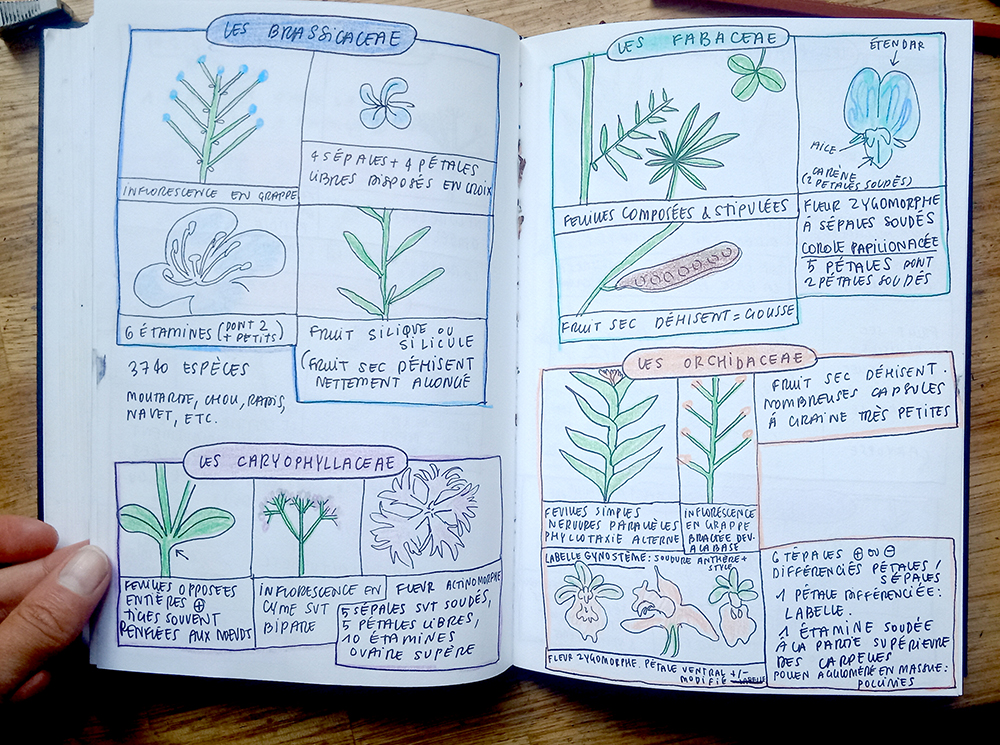 LES BRASSICACEAE
INFLORESCENCE EN GRAPPE
4 SÉPALES + 4 PÉTALES
LIBRES DISPOSÉS EN CROIX
6 ÉTAMINES (DONT 2
+ PETITS)
FRUIT SILIQUE OU
SILICULE
(FRUIT SEC DÉHISENT
NETTEMENT ALLONGÉ
3740 ESPÈCES
MOUTARTE, CHOU, RADIS,
NAVET, ETC.
LES CARYOPHYLLACEAE
FEUILLES OPPOSÉES
ENTIÈRES ⊕
TIGES SOUVENT
RENFLÉES AUX NŒUDS
INFLORESCENCE EN
CYME SVT
BIPARE
FLEUR ACTINOMORPHE
5 SÉPALES SVT SOUDÉS,
5 PÉTALES LIBRES,
10 ÉTAMINES
OVAIRE SUPÈRE
LES FABACEAE
FEUILLES COMPOSÉES & STIPULÉES
FRUIT SEC DÉHISENT = GOUSSE
ÉTENDAR
AILE
CARÈNE
(2 PÉTALES SOUDÉS)
FLEUR ZYGOMORPHE
À SÉPALES SOUDÉS
COROLE PAPILIONACÉE
5 PÉTALES DONT
2 PÉTALES SOUDÉS
LES ORCHIDACEAE
FEUILLES SIMPLES
NERVURES PARALLÈLES
PHYLLOTAXIE ALTERNE
INFLORESCENCE
EN GRAPPE
BRACTÉE DEV.
A LA BASE
FRUIT SEC DÉHISENT.
NOMBREUSES CAPSULES
À GRAINE TRÈS PETITES
LABELLE GYNOSTÈME: SOUDURE ANTHÈRE +
STYLE
FLEUR ZYGOMORPHE. PÉTALE VENTRAL +/-
MODIFIÉ LABELLE
6 TÉPALES ⊕ OU ⊖
DIFFÉRENCIÉS PÉTALES /
SÉPALES
1 PÉTALE DIFFÉRENCIÉE:
LABELLE.
1 ÉTAMINE SOUDÉE
À LA PARTIE SUPÉRIEURE
DES CARPELLES
POLLEN AGGLOMÉRÉ EN MASSUE:
POLLINIES